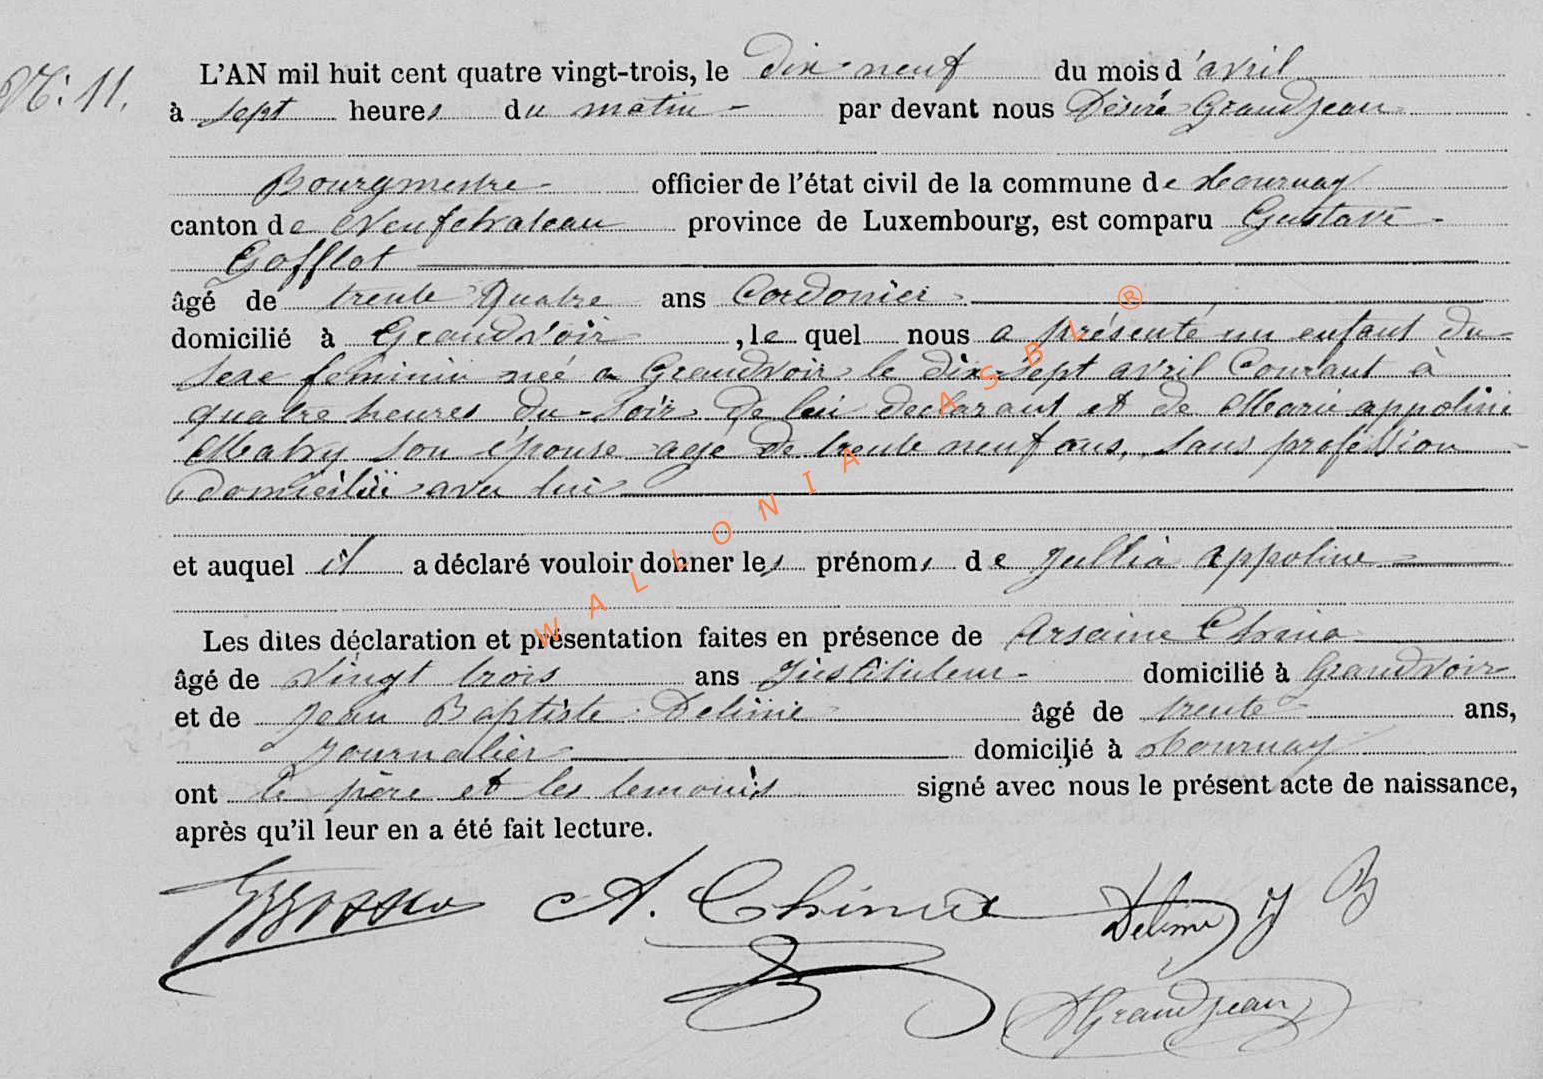 N: 11.
L'AN mil huit cent quatre vingt-trois, le dix neuf du mois d'avril
à sept heures du matin par devant nous Désiré Grandjean
Bourgmestre officier de l'état civil de la commune de Tournay
canton de Neufchateau province de Luxembourg, est comparu Gustave
Gofflot
âgé de trente quatre ans Cordonier
domicilié à Grandvoir, le quel nous a présenté un enfant du
sexe feminin née a Grandvoir le dix-sept avril Courant à
quatre heures du soir de lui declarant et de Marie appoline
son épouse agé de trente neuf ans, sans profession
domicilié avec lui
et auquel il a déclaré vouloir donner les prénoms de Jullia appoline
Les dites déclaration et présentation faites en présence de
âgé de vingt trois ans Instituteur domicilié à Grandvoir
et de Jean Baptiste Delimé âgé de trente ans,
journalier domicilié à Tournay
ont le père et les temouis signé avec nous le présent acte de naissance,
après qu'il leur en a été fait lecture.
A. Delimé J B
DGrandjean
WALLONIA ASBL ®